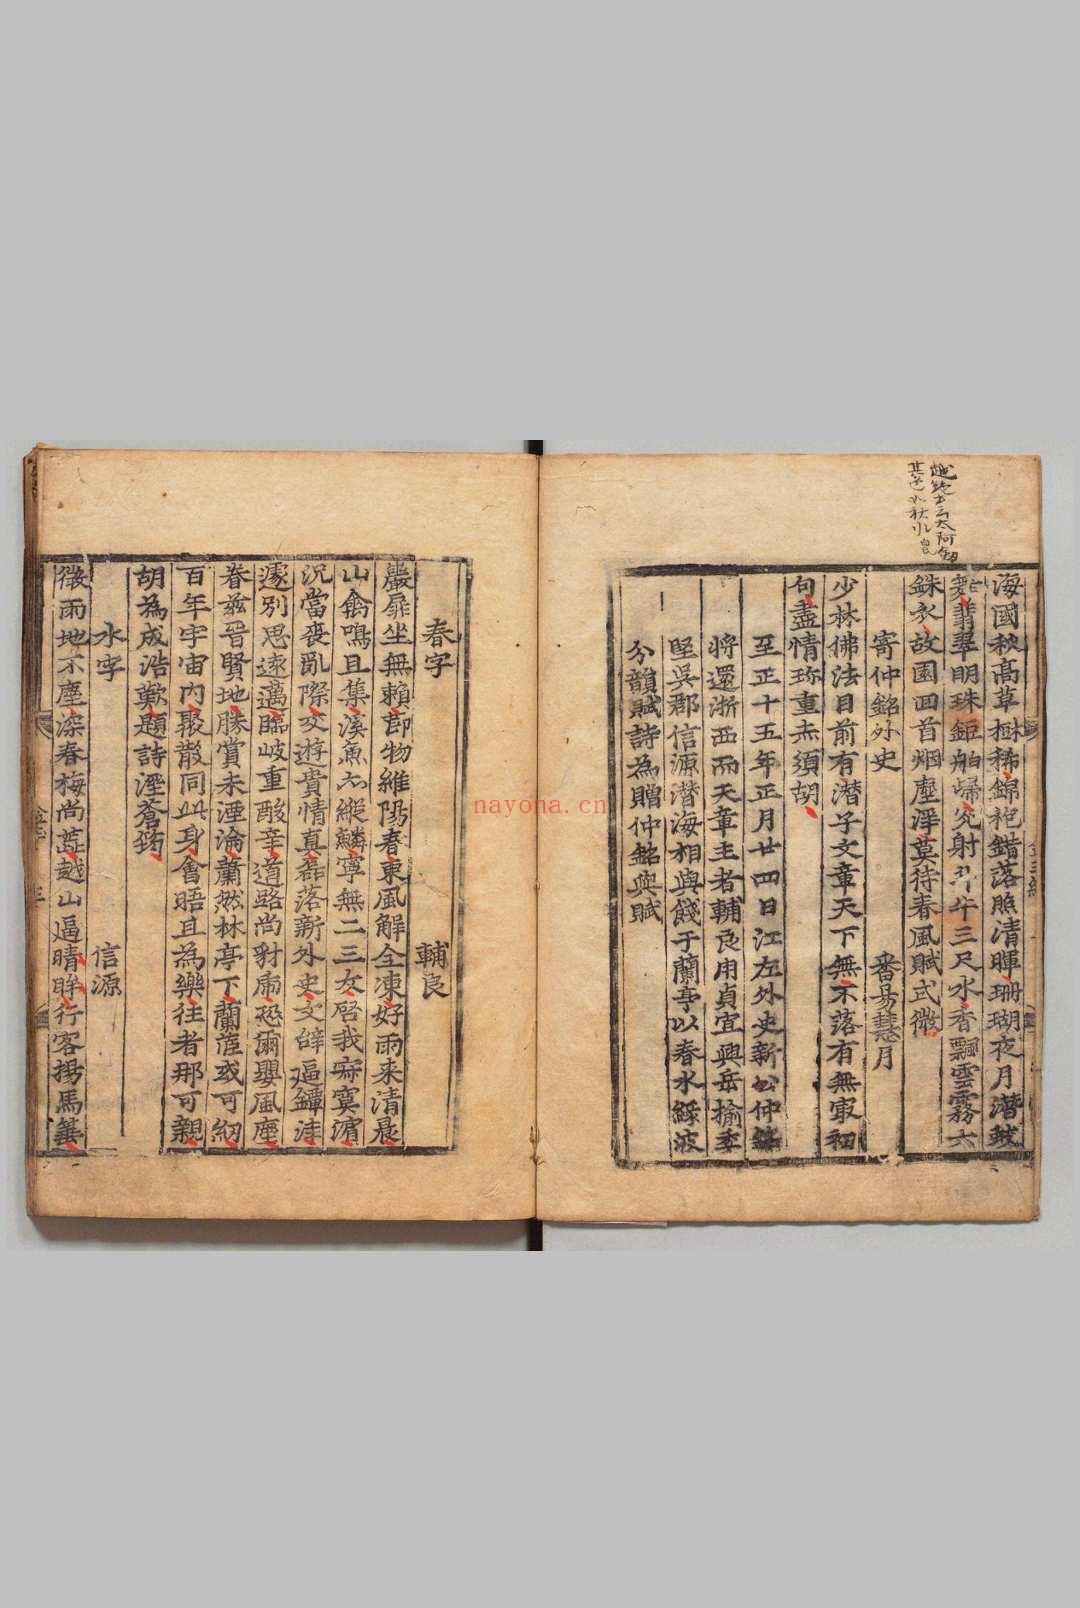 越絶書云太阿劔
其色如秋水
海國秋髙草樹稀錦袍錯落照清暉珊瑚夜月潜蛟
舞翡翠明珠鉅舶歸光射斗牛三尺水香飄雲霧六
銖衣故園回首烟塵浄莫待春風賦式微
寄仲銘外史 番昜慧月
少林佛法目前有潜子文章天下無不落有無最初
句盡情珎重赤須胡
至正十五年正月廿四日江左外史新公仲銘
將還浙西而天章主者輔良用貞宜興岳揄季
堅吳郡信源潜海相與餞于蘭亭以春水緑波
分韻賦詩為贈仲銘與賦
春字 輔良
巖扉坐無賴即物維陽春東風解全凍好雨来清晨
山禽鳴且集溪魚亦縱鱗寧無二三友啓我寂寞濵
况當喪亂際交遊貴情真磊落新外史文辭逼鐔津
遽別思逺邁臨岐重酸辛道路尚豺席恐爾嬰風塵
眷兹晉賢地勝賞未湮淪蕭然林亭下蘭茝或可紉
百年宇宙内聚散同此身會晤且為樂往者那可親
胡為成浩歎題詩溼蒼筠
水字 信源
微雨地不塵深春梅尚蕋越山逼晴眸行客揚馬箠
nayona.cn